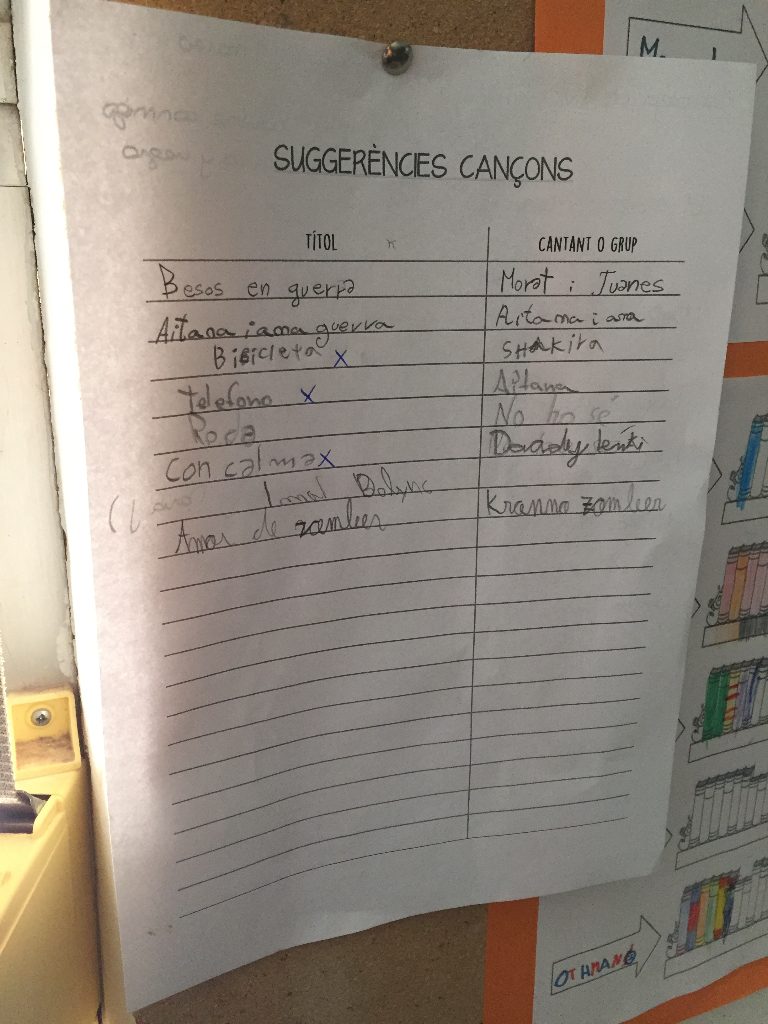 SUGGERÈNCIES CANÇONS
TÍTOL CANTANT O GRUP
Besos en guerra Morat i Juanes
Aitana i ama guerra Aitama i ana
Bicicleta X SHAkira
Telefono X Aitana
Roda No ho sé
Con calma X Daddy
Amor de zomleer Kranno zomleer
OTHMANE